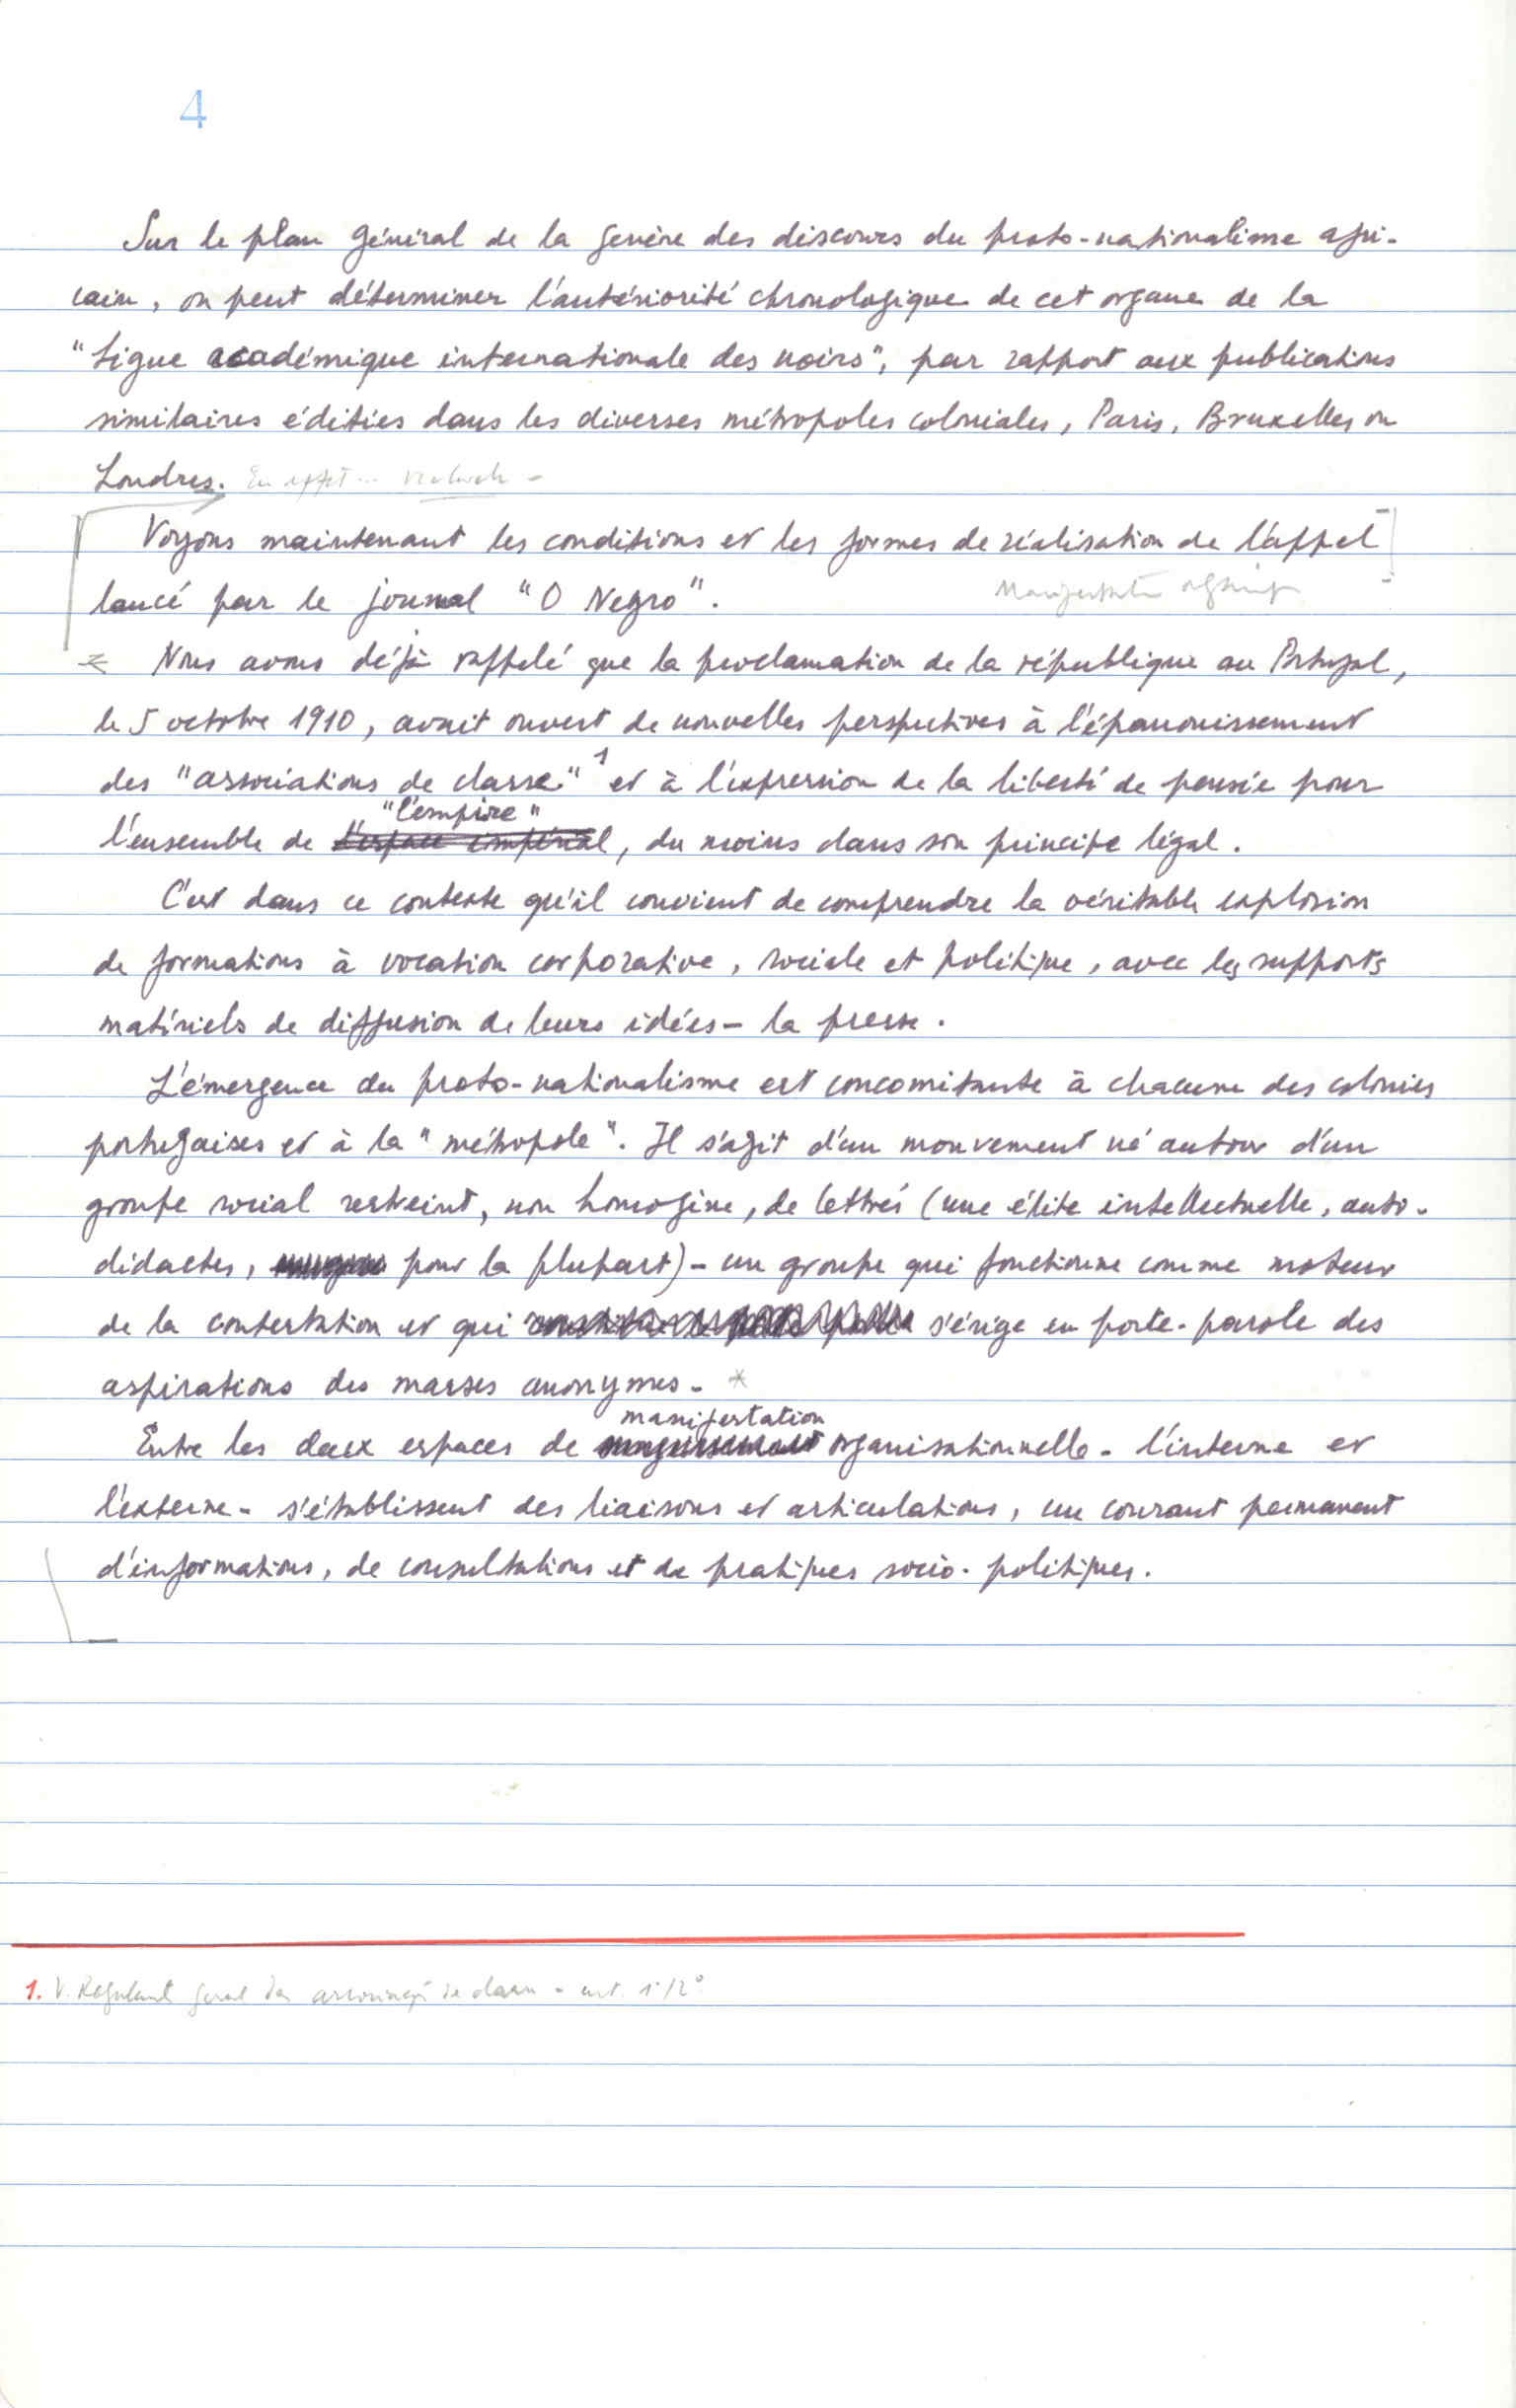 4
Sur le plan général de la genèse des discours du proto-nationalisme afri-
cain, on peut déterminer l'antériorité chronologique de cet organe de la
"Ligue académique internationale des noirs", par rapport aux publications
similaires éditées dans les diverses métropoles coloniales, Paris, Bruxelles ou
Londres. En effet...
Voyons maintenant les conditions et les formes de réalisation de l'appel
lancé par le journal "O Negro".
Nous avons déjà rappelé que la proclamation de la république au Portugal,
le 5 octobre 1910, avait ouvert de nouvelles perspectives à l'épanouissement
des "associations de classe" 1 et à l'expression de la liberté de pensée pour
"l'empire"
l'ensemble de l'espace impérial, du moins dans son principe légal.
C'est dans ce contexte qu'il convient de comprendre la véritable explosion
de formations à vocation corporative, sociale et politique, avec les supports
matériels de diffusion de leurs idées - la presse.
L'émergence du proto-nationalisme est concomitante à chacune des colonies
portugaises et à la "métropole". Il s'agit d'un mouvement né autour d'un
groupe social restreint, non homogène, de lettrés (une élite intellectuelle, auto-
didactes, pour la plupart) - un groupe qui fonctionne comme moteur
de la contestation et qui s'érige en porte-parole des
aspirations des masses anonymes. *
manifestation
Entre les deux espaces de organisationnelle - l'interne et
l'externe - s'établissent des liaisons et articulations, un courant permanent
d'informations, de consultations et de pratiques socio-politiques.
1. V. geral das de - art. 1º/2º